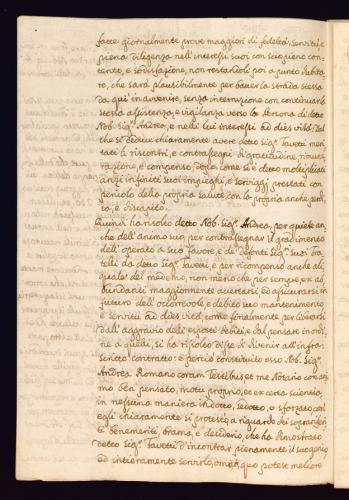 fatte giornalmente prove maggiori di fedeltà, servitù, e
piena diligenza nell'interessi suoi con suo pieno con-
tento, e sodisfazione, non restandoli poi a punto dubita-
re, che sarà plausibilmente per havere la strada stessa
da qui in avvenire, senza interruzione con continuare la
stessa assistenza, e vigilanza verso la persona di detto
Nob. Sigr. Andrea, e nelli lui interessi ad dies vitae. Dal
che si deduce chiaramente avere detto Sigr. Tavetti meri-
tati li riscontri, e contrassegni di gratitudine, rimune-
razione, e compenso
anzi infiniti suoi impieghi, e servizzi prestati con
pericolo della propria salute, con la propria anche perdi-
ta, e discapito.
Quindi ha risolto detto Nob. Sigr. Andrea, per quiete an-
che dell'animo suo, per contrassegnar il gradimento
dell'operato a suo favore, e de' defonti Sigri. suoi Fra-
telli da detto Sigr. Tavetti, e per ricompensa anche al-
quale del medemo, non meno che per sempre ex ab-
bundanti maggiormente accertarsi, ed assicurarsi in
futuro dell'occorrevole, e debito suo mantenimento
e servitù ad dies vitae, come finalmente per liberarsi
dall'aggravio delli esposti debiti, e dal pensare in ordi-
ne a quelli, si ha risoluto di divenir all'infra-
scritto contratto: e perciò constituito esso Nob. Sigr.
Andrea Romano coram Testibus, et me Notario con ani-
mo ben pensato, motu proprio, et ex certa scientia,
in nessuna maniera indotto, sedotto, o sforzato, co-
egli chiaramente si protesta, a riguardo dei sopradetti
benemeriti, brama, e desiderio, che ha dimostrato
detto Sigr. Tavetti d'incontrar pienamente il suo genio
ed intieramente servirlo, potesse meliore